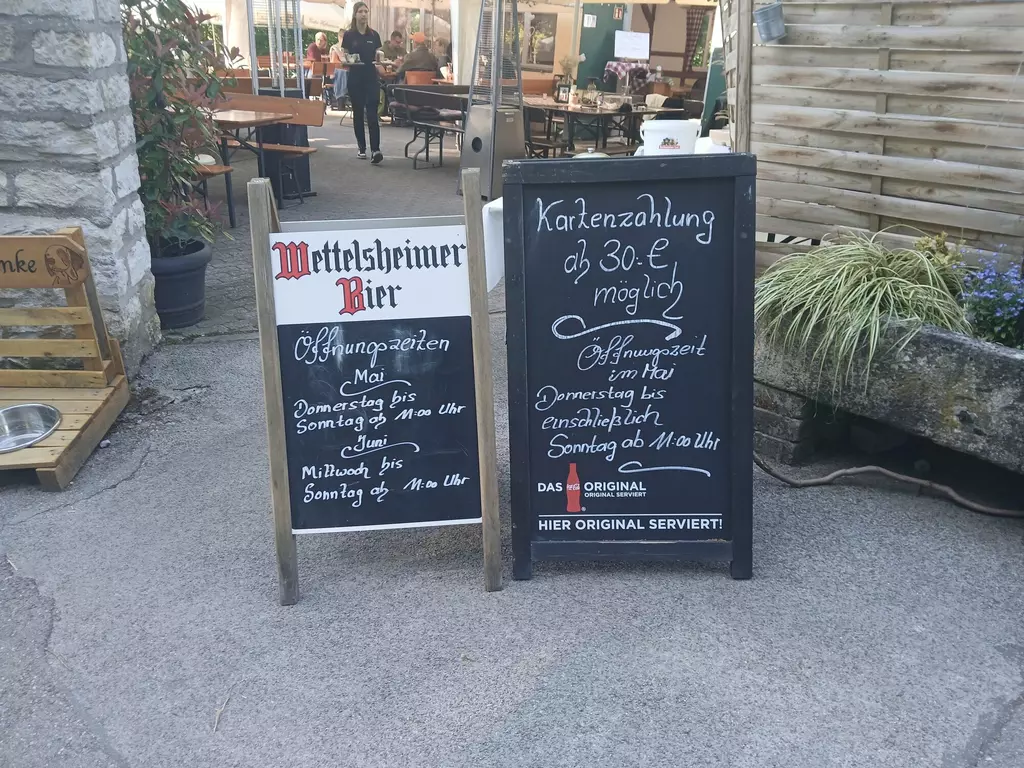 Wettelsheimer
Bier
Öffnungszeiten
Mai
Donnerstag bis
Sonntag ab 11:00 Uhr
Juni
Mittwoch bis
Sonntag ab 11:00 Uhr
Kartenzahlung
ab 30.-€
möglich
Öffnungszeit
im Mai
Donnerstag bis
einschließlich
Sonntag ab 11:00 Uhr
DAS ORIGINAL
ORIGINAL SERVIERT
HIER ORIGINAL SERVIERT!